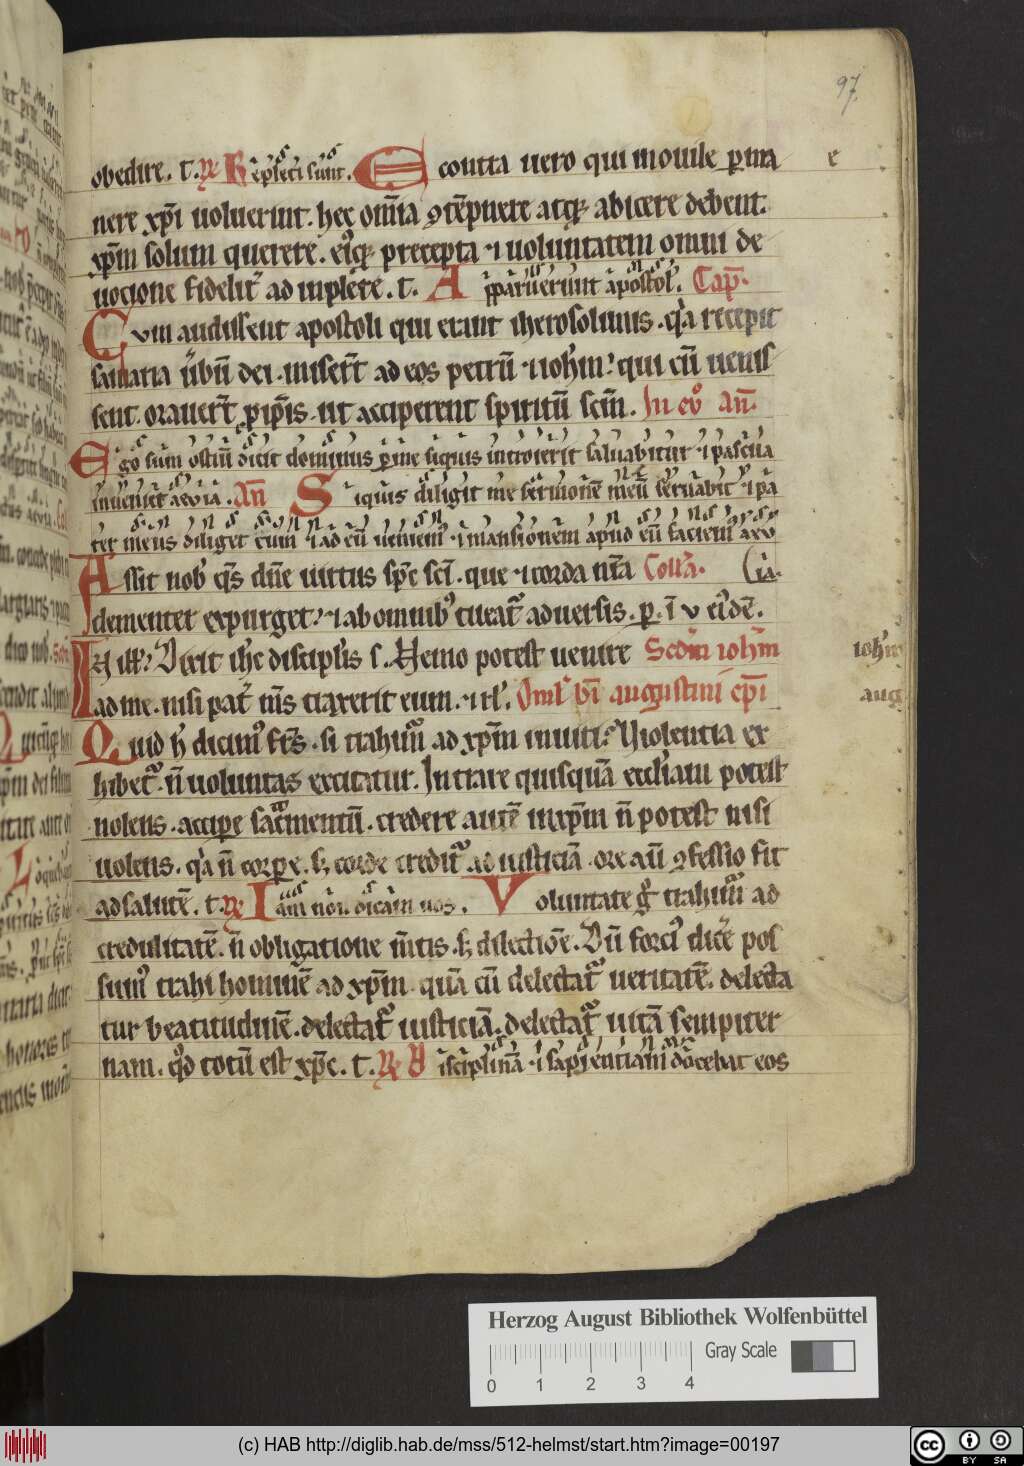 97.
obedire. t. R Repleti sunt. E contra uero qui mobile perma e
nere xp̄i uoluerint. hec om̄ia ꝯtēpnere atq; abicere debent.
xp̄m solum querere. eiꝰq; precepta ⁊ uoluntatem omni de
uocione fidelit̉ ad inplere. t. A pparuerunt apostol̉. Cap̄.
Cvm audissent apostoli qui erant iherosolimis. q̉a recepit
samaria ủbū dei. miser̄t ad eos petrū ⁊ ioh̄m? qui cū uenis
sent. orauer̄t p̄ ip̄is. ut acciperent spiritū sc̄m. In eu̅ an̄.
Ego sum ostiū dicit dominus per me siquis introierit saluabitur ⁊ pascua
inueniet aeuia. An̄ Siquis diligit me sermonē meū seruabit ⁊ pa
ter meus diliget eum ⁊ ad eūueniemꝰ ⁊ mansionem apud eū faciemꝰ aeu
Assit nob̉ q̄s dn̄e uirtus sp̄c sc̄i. que ⁊ corda nr̄a Coll̉a. (ia.
clementer expurget? ⁊ ab omnibꝰ tueat̉ aduersis. p. ī v eiꝰdē.
IN ill̄? Dixit ih̄c discipl̉is s. Nemo potest uenire Scd̄m ioh̄m
ad me. nisi pat̉ m̄s traxerit eum. ⁊ rl̉. Oml̉ bī augustini ep̄i
Quid h̄ dicimꝰ fr̄s. si trahim̉ ad xp̄m inuiti? Uiolentia ex
hibet̉. n̄ uoluntas excitatur. Intrare quisquā eccl̉iam potest
nolens. accipe sac̉mentū. credere autē in xp̄m n̄ potest nisi
uolens. q̉a n̄ corpore. s; corde credit̉ ad iusticiā. ore aū ꝯfessio fit
ad salutē. t. R Iam non dicam uos. V oluntate g̉ trahim̉ ad
credulitatē. n̄ obligatione m̄tis. s; dilectiōe. Dū forciꝰ dic̉e pos
sumꝰ trahi hominē ad xp̄m quā cū delectat̉ ueritatē. delecta
tur beatitudinē. delectat̉ iusticiā. delectat̉ uitā sempiter
nam. qd̉ totū est xp̄c. t. R Disciplinā ⁊ sapientiam docebat eos
ioh̄m
aug
Herzog August Bibliothek Wolfenbüttel
Gray Scale
0 1 2 3 4
(c) HAB http://diglib.hab.de/mss/512-helmst/start.htm?image=00197
cc BY SA